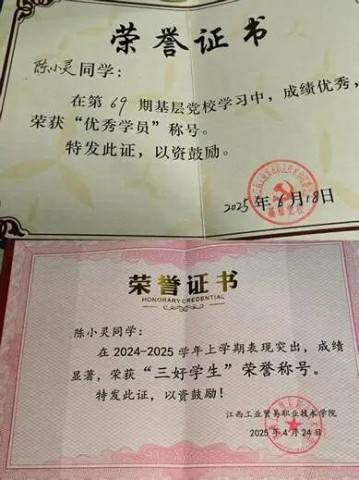 荣誉证书
陈小灵同学：
在第69期基层党校学习中，成绩优秀，
荣获“优秀学员”称号。
特发此证，以资鼓励。
2025年6月18日
荣誉证书
HONORARY CREDENTIAL
陈小灵同学：
在2024-2025学年上学期表现突出，成绩
显著，荣获“三好学生”荣誉称号。
特发此证，以资鼓励！
江西工业贸易职业技术学院
2025年4月24日